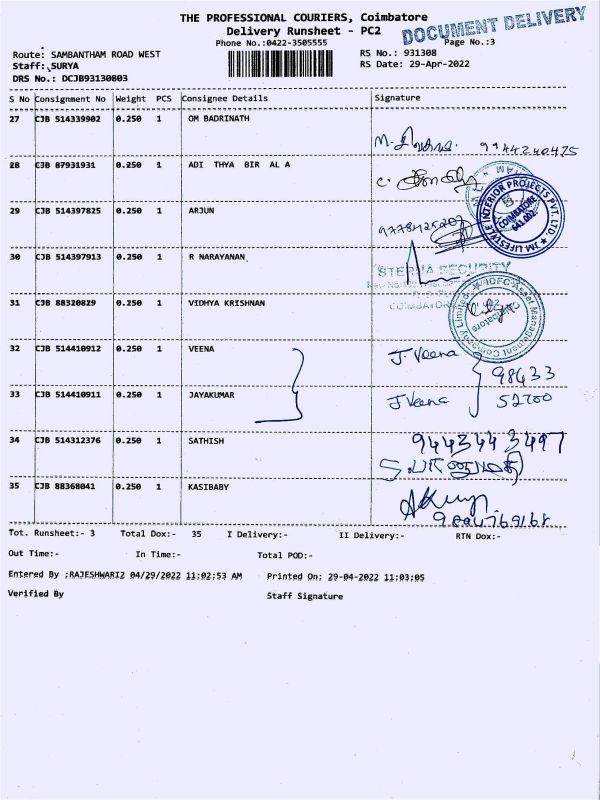 THE PROFESSIONAL COURIERS, Coimbatore
Delivery Runsheet - PC2
DOCUMENT DELIVERY
Phone No.:0422-3505555
Page No.:3
Route: SAMBANTHAM ROAD WEST
RS No.: 931308
Staff: SURYA
RS Date: 29-Apr-2022
DRS No.: DCJB93130803
S No Consignment No Weight PCS Consignee Details Signature
27 CJB 514339902 0.250 1 OM BADRINATH
9944240425
28 CJB 87931931 0.250 1 ADI THYA BIR AL A
JM LIFESTYLE INTERIOR PROJECTS PVT. LTD. COIMBATORE 641 002
29 CJB 514397825 0.250 1 ARJUN
30 CJB 514397913 0.250 1 R NARAYANAN
SECURITY
COIMBATORE
31 CJB 88320829 0.250 1 VIDHYA KRISHNAN
IDFC Asset Management Company Limited Coimbatore
32 CJB 514410912 0.250 1 VEENA J. Veena
98433
33 CJB 514410911 0.250 1 JAYAKUMAR J Veena
52700
34 CJB 514312376 0.250 1 SATHISH 9443443497
35 CJB 88368041 0.250 1 KASIBABY
Tot. Runsheet:- 3 Total Dox:- 35 I Delivery:- II Delivery:- RTN Dox:-
Out Time:- In Time:- Total POD:-
Entered By :RAJESHWARI2 04/29/2022 11:02:53 AM Printed On; 29-04-2022 11:03:05
Verified By Staff Signature